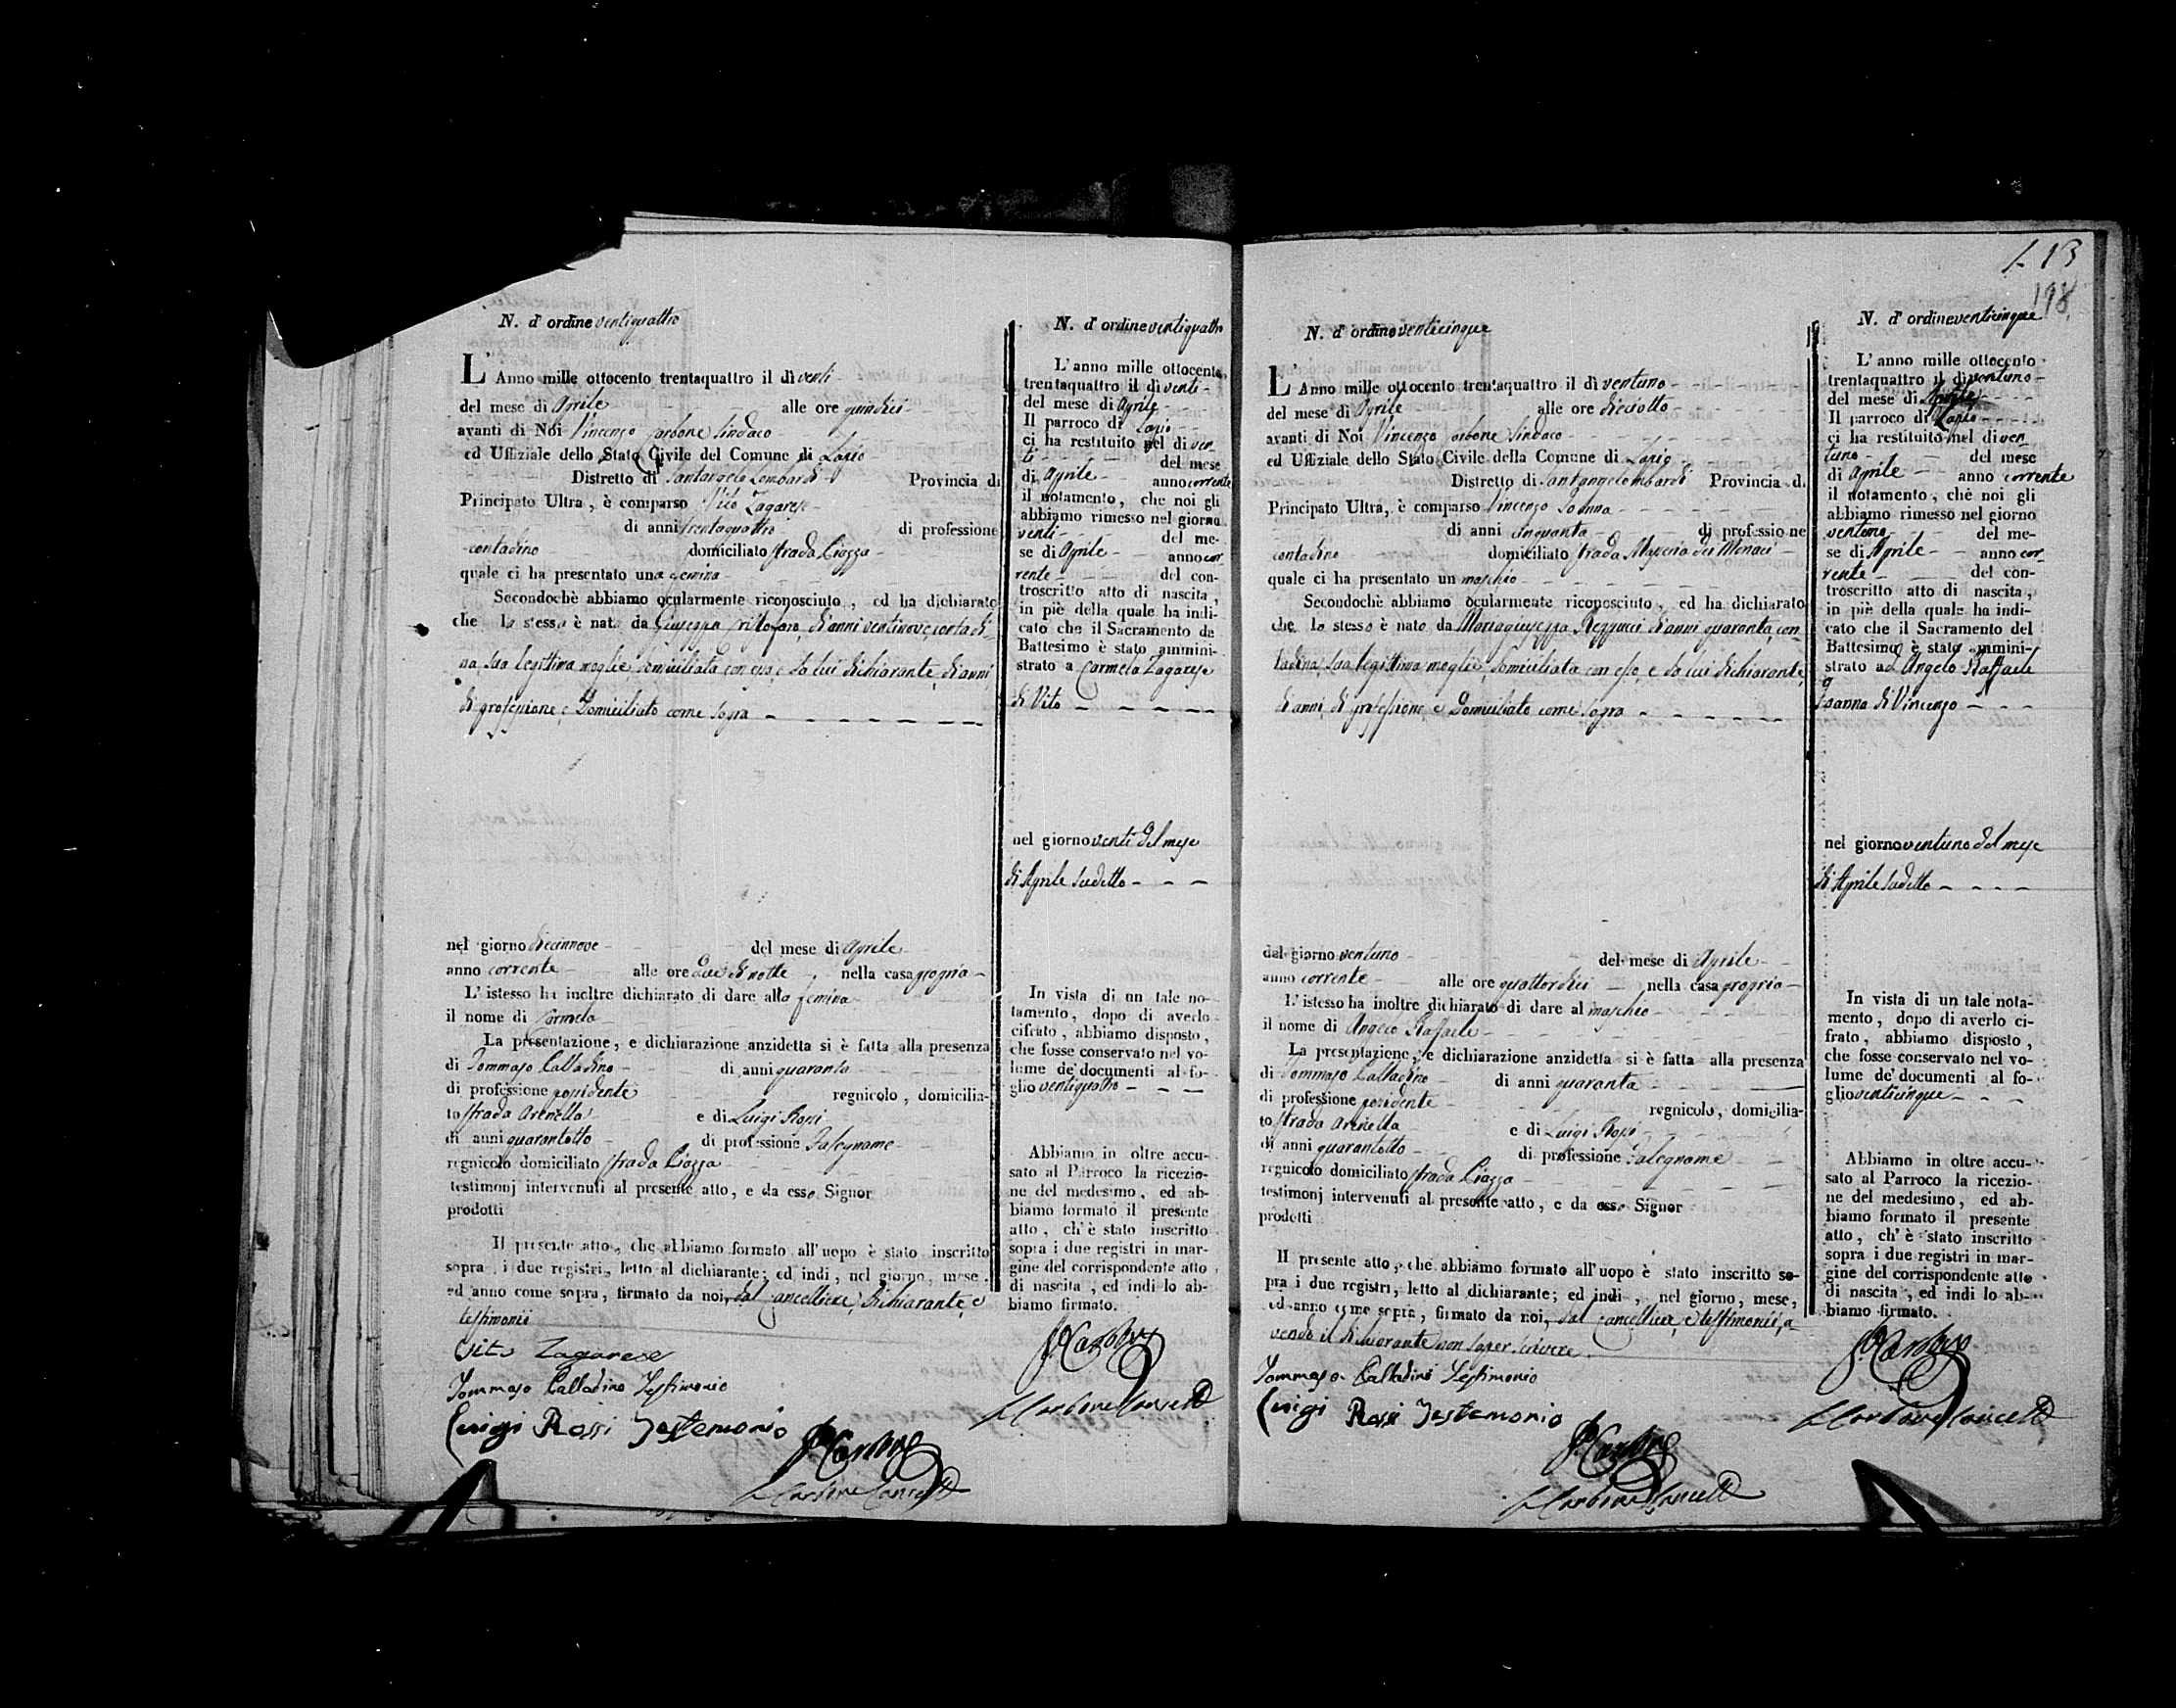 N. d' ordine ventiquattro
L' Anno mille ottocento trentaquattro il dì venti
del mese di Aprile alle ore quindici
avanti di Noi Vincenzo Carbone Sindaco
ed Uffiziale dello Stato Civile del Comune di Lapio
Distretto di Santangelo Lombardi Provincia di
Principato Ultra, è comparso Vito Zagarese
di anni trentaquattro di professione
contadino domiciliato strada Piazza
quale ci ha presentato una femina
Secondochè abbiamo ocularmente riconosciuto, ed ha dichiarato
che la stessa è nata da Giuseppa Cristofaro, di anni ventinove, contadi-
na, sua legittima moglie, domiciliata con esso, e da lui dichiarante, di anni,
di professione, e domiciliato come sopra
nel giorno diecinnove del mese di Aprile
anno corrente alle ore due di notte nella casa propria
L' istesso ha inoltre dichiarato di dare alla femina
il nome di Carmela
La presentazione, e dichiarazione anzidetta si è fatta alla presenza
di Tommaso Calladino di anni quaranta
di professione possidente regnicolo, domicilia-
to strada Arenella e di Luigi Rossi
di anni quarantotto di professione Falegname
regnicolo domiciliato strada Piazza
testimonj intervenuti al presente atto, e da esso Signor
prodotti
Il presente atto, che abbiamo formato all' uopo è stato inscritto
sopra i due registri, letto al dichiarante; ed indi, nel giorno, mese,
ed anno come sopra, firmato da noi, dal Cancelliere, dichiarante, e
testimonii
Vito Zagarese
Tommaso Calladino Testimonio
Luigi Rossi Testemonio
V. Carbone
Carbone Cancell
N. d' ordine ventiquattro
L' anno mille ottocento
trentaquattro il dì venti
del mese di Aprile
Il parroco di Lapio
ci ha restituito nel dì ven-
ti del mese
di Aprile anno corrente
il notamento, che noi gli
abbiamo rimesso nel giorno
venti del me-
se di Aprile anno cor-
rente del con-
troscritto atto di nascita,
in piè della quale ha indi-
cato che il Sacramento de
Battesimo è stato ammini-
strato a Carmela Zagarese
di Vito
nel giorno venti del mese
di Aprile sudetto
In vista di un tale no-
tamento, dopo di averlo
cifrato, abbiamo disposto,
che fosse conservato nel vo-
lume de' documenti al fo-
glio ventiquattro
Abbiamo in oltre accu-
sato al Parroco la ricezio-
ne del medesimo, ed ab-
biamo formato il presente
atto, ch' è stato inscritto
sopra i due registri in mar-
gine del corrispondente atto
di nascita, ed indi lo ab-
biamo firmato.
V. Carbone
Carbone Cancell
113
198
N. d' ordine venticinque
L' Anno mille ottocento trentaquattro il dì ventuno
del mese di Aprile alle ore dieciotto
avanti di Noi Vincenzo Carbone Sindaco
ed Uffiziale dello Stato Civile della Comune di Lapio
Distretto di Santangelo Lombardi Provincia di
Principato Ultra, è comparso Vincenzo Joanna
di anni cinquanta di professione
contadino domiciliato strada Masseria dei Monaci
quale ci ha presentato un maschio
Secondochè abbiamo ocularmente riconosciuto, ed ha dichiarato
che lo stesso è nato da Mariagiuseppa di anni quaranta, con-
tadina, sua legittima moglie, domiciliata con esso, e da lui dichiarante,
di anni, di professione, e domiciliato come sopra
del giorno ventuno del mese di Aprile
anno corrente alle ore quattordici nella casa propria
L' istesso ha inoltre dichiarato di dare al maschio
il nome di Angelo Raffaele
La presentazione, e dichiarazione anzidetta si è fatta alla presenza
di Tommaso Calladino di anni quaranta
di professione possidente regnicolo, domicilia-
to strada Arenella e di Luigi Rossi
di anni quarantotto di professione Falegname
regnicolo domiciliato strada Piazza
testimonj intervenuti al presente atto, e da esso Signor
prodotti
Il presente atto, che abbiamo formato all' uopo è stato inscritto so-
pra i due registri, letto al dichiarante; ed indi, nel giorno, mese,
ed anno come sopra, firmato da noi, dal Cancelliere, e testimonii, a-
vendo il dichiarante non saper scrivere
Tommaso Calladino Testimonio
Luigi Rossi Testemonio
V. Carbone
Carbone Cancell
N. d' ordine venticinque
L' anno mille ottocento
trentaquattro il dì ventuno
del mese di Aprile
Il parroco di Lapio
ci ha restituito nel dì ven-
tuno del mese
di Aprile anno corrente
il notamento, che noi gli
abbiamo rimesso nel giorno
ventuno del me-
se di Aprile anno cor-
rente del con-
troscritto atto di nascita,
in piè della quale ha indi-
cato che il Sacramento del
Battesimo è stato ammini-
strato ad Angelo Raffaele
Joanna di Vincenzo
nel giorno ventuno del mese
di Aprile sudetto
In vista di un tale nota-
mento, dopo di averlo ci-
frato, abbiamo disposto,
che fosse conservato nel vo-
lume de' documenti al fo-
glio venticinque
Abbiamo in oltre accu-
sato al Parroco la ricezio-
ne del medesimo, ed ab-
biamo formato il presente
atto, ch' è stato inscritto
sopra i due registri in mar-
gine del corrispondente atto
di nascita, ed indi lo ab-
biamo firmato.
V. Carbone
Carbone Cancell